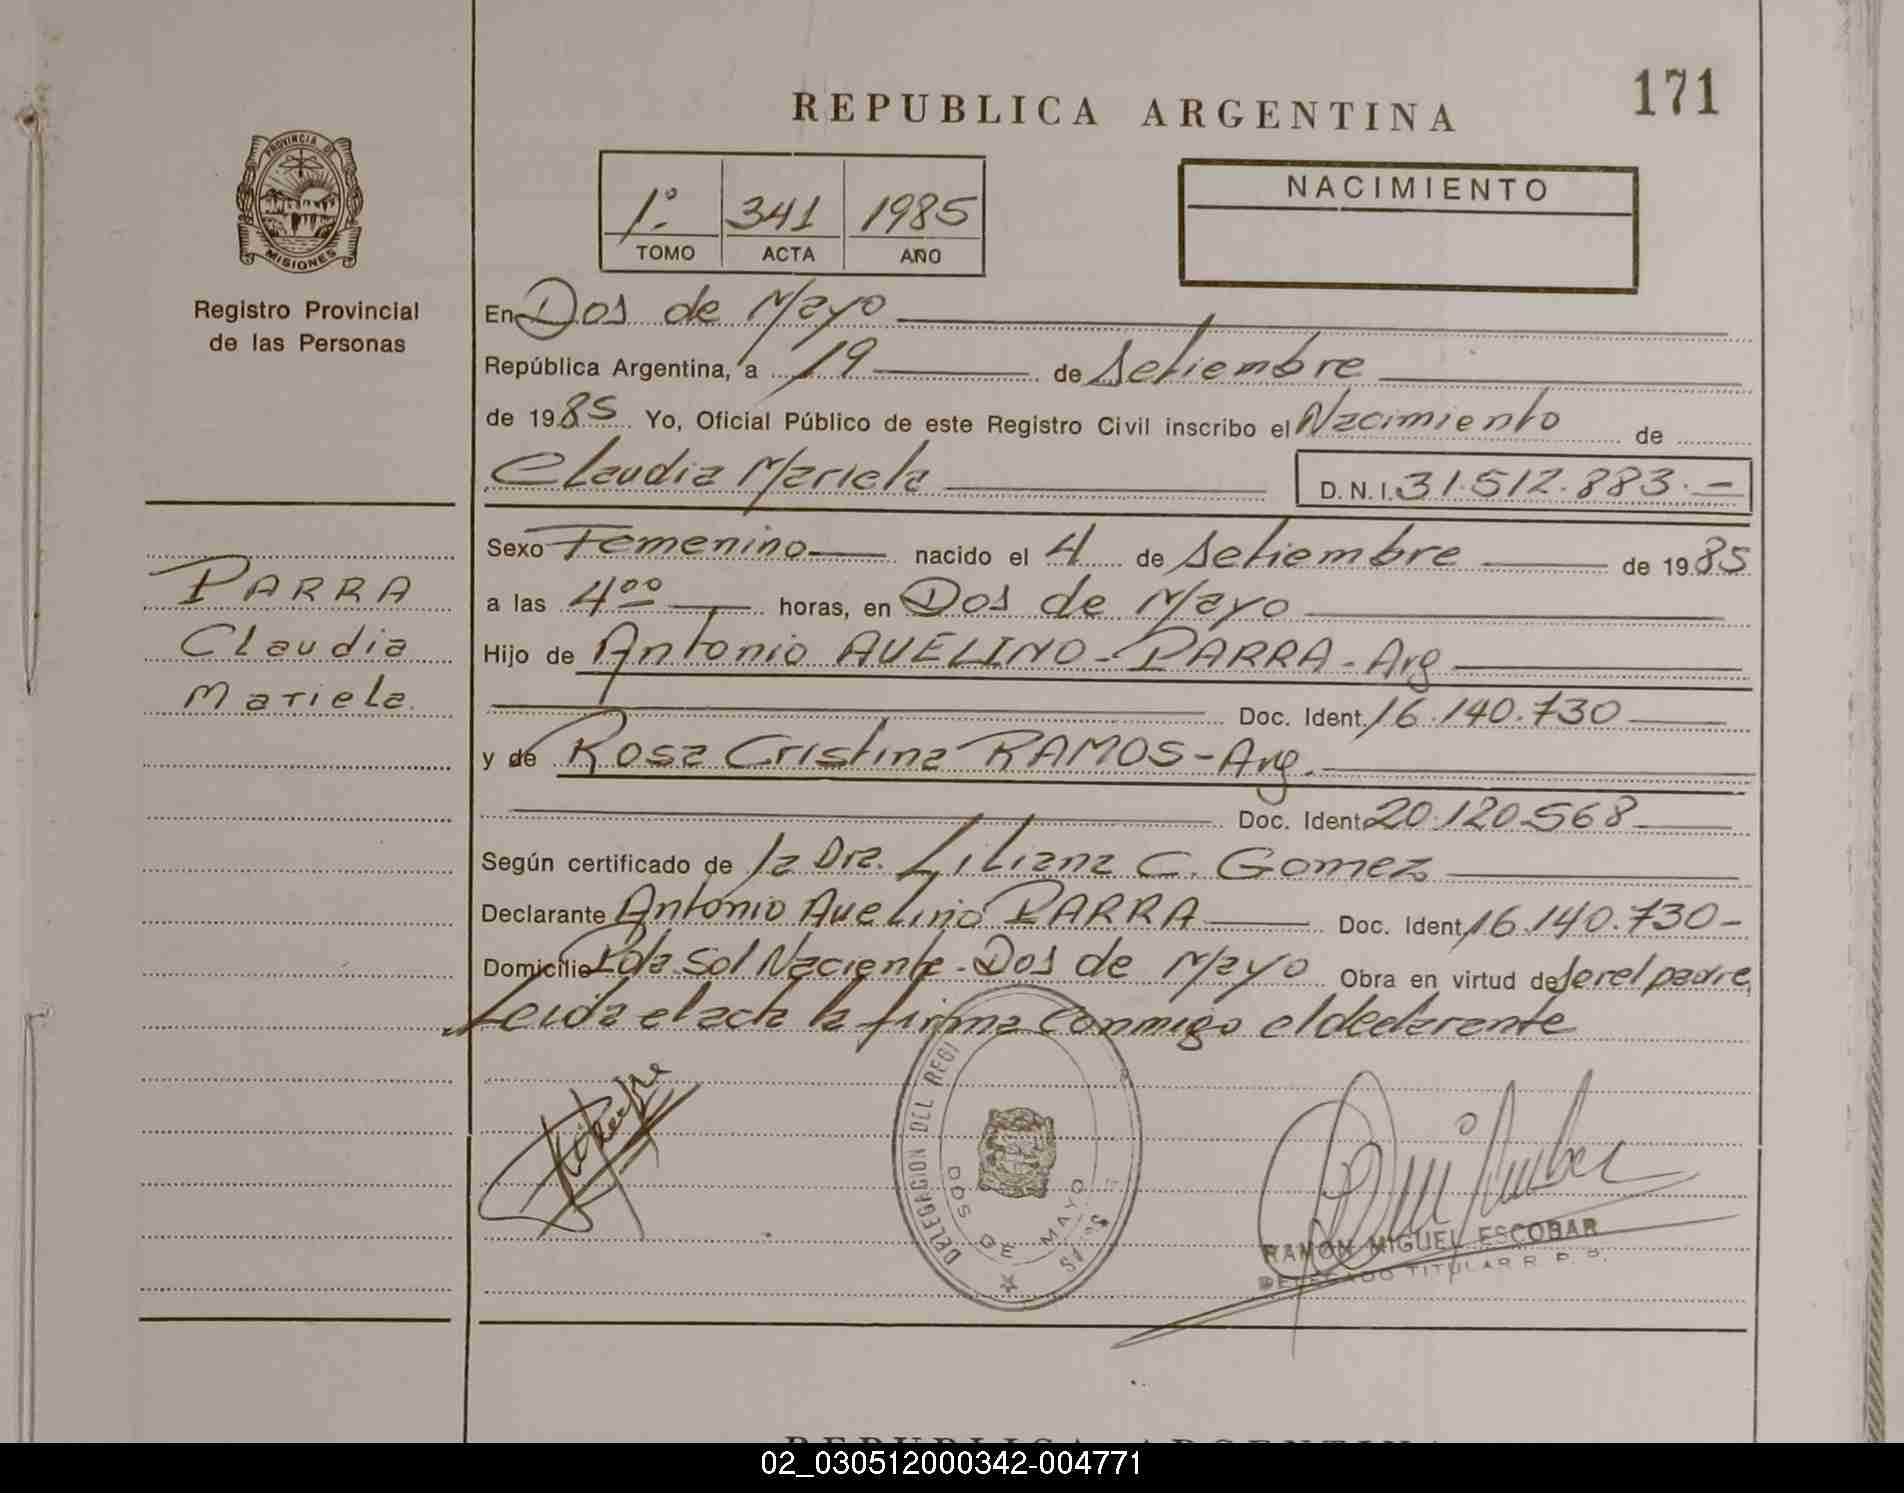 171
REPUBLICA ARGENTINA
PROVINCIA DE
MISIONES
Registro Provincial
de las Personas
1º 341 1985
TOMO ACTA AÑO
NACIMIENTO
En Dos de Mayo
República Argentina, a 19 de Setiembre
de 1985 Yo, Oficial Público de este Registro Civil inscribo el Nacimiento de
Claudia Mariela D.N.I. 31.512.883.-
PARRA
Claudia
Mariela.
Sexo Femenino nacido el 4 de Setiembre de 1985
a las 4ºº horas, en Dos de Mayo
Hijo de Antonio AVELINO - PARRA - Arg
Doc. Ident. 16.140.730
y de Rosa Cristina RAMOS - Arg.
Doc. Ident. 20.120.568
Según certificado de la Dra. Liliana C. Gomez
Declarante Antonio Avelino PARRA Doc. Ident. 16.140.730-
Domicilio Pda Sol Naciente - Dos de Mayo Obra en virtud de ser el padre,
Leida el acta la firma conmigo el declarante
DELEGACION DEL REGI
DOS DE MAYO
RAMON MIGUEL ESCOBAR
DELEGADO TITULAR R. P. P.
REPUBLICA ARGENTINA
02_030512000342-004771